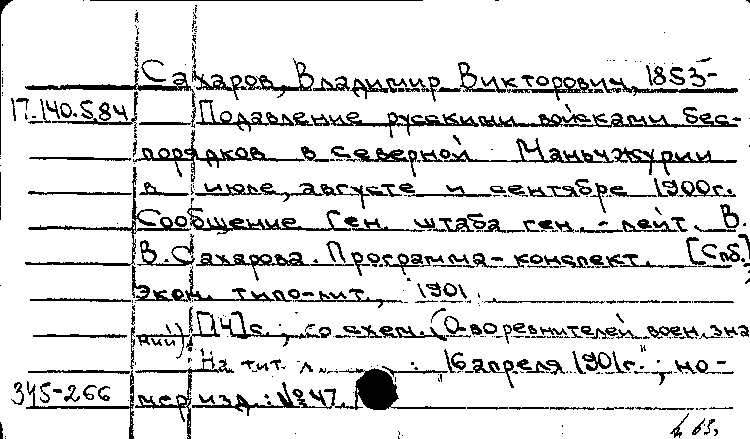 Сахаров, Владимир Викторович, 1853-
17.140.5.84 Подавление русскими войсками бес-
порядков в северной Маньчжурии
в июле, августе и сентябре 1900г.
Сообщение Ген. штаба ген.-лейт. В.
В. Сахарова. Программа-конспект. [Спб.]
Экон. типо-лит., 1901.
[14]с.; со схем. (О-во ревнителей воен. зна
ний).
На тит. л. : "16 апреля 1901г."; но-
345-266 мер изд.: №47.